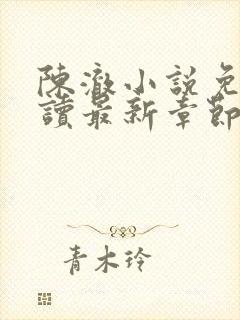 陳澈小説免
讀最新章節
青木玲